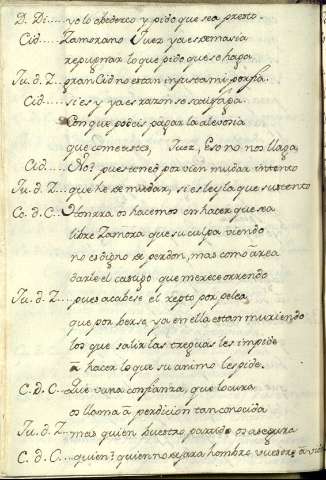 D. Di... yo lo obedezco y pido que sea presto.
Cid... Zamorano Juez ya es demasia
repugnar lo que pido que se haga
Ju. d. Z. gran Cid no es tan injusta mi porfia.
Cid... si es y ya es razon se satisfaga.
Con que podeis pagar la alevosia
que cometistes, Juez, Eso no nos llaga,
Cid... No? pues tened por vien mudar intento
Ju. d. Z... que he de mudar, si es ley la que sustento
Co. d. C... Honrra os hacemos en hacer que sea
libre Zamora que su culpa viendo
no es digno de perdon, mas como area
darle el castigo que merece orrendo
Ju. d. Z... pues acabese el repto por pelea
que por verse, ya en ella estan muriendo
los que salir las treguas les impide
a hacer lo que su animo les pide.
C. d. C... Que vana confianza, que locura
os llama a perdicion tan conocida
Ju. d. Z... mas quien buestro partido os asegura
C. d. C... quien? quien no dejara hombre vuestro a vida